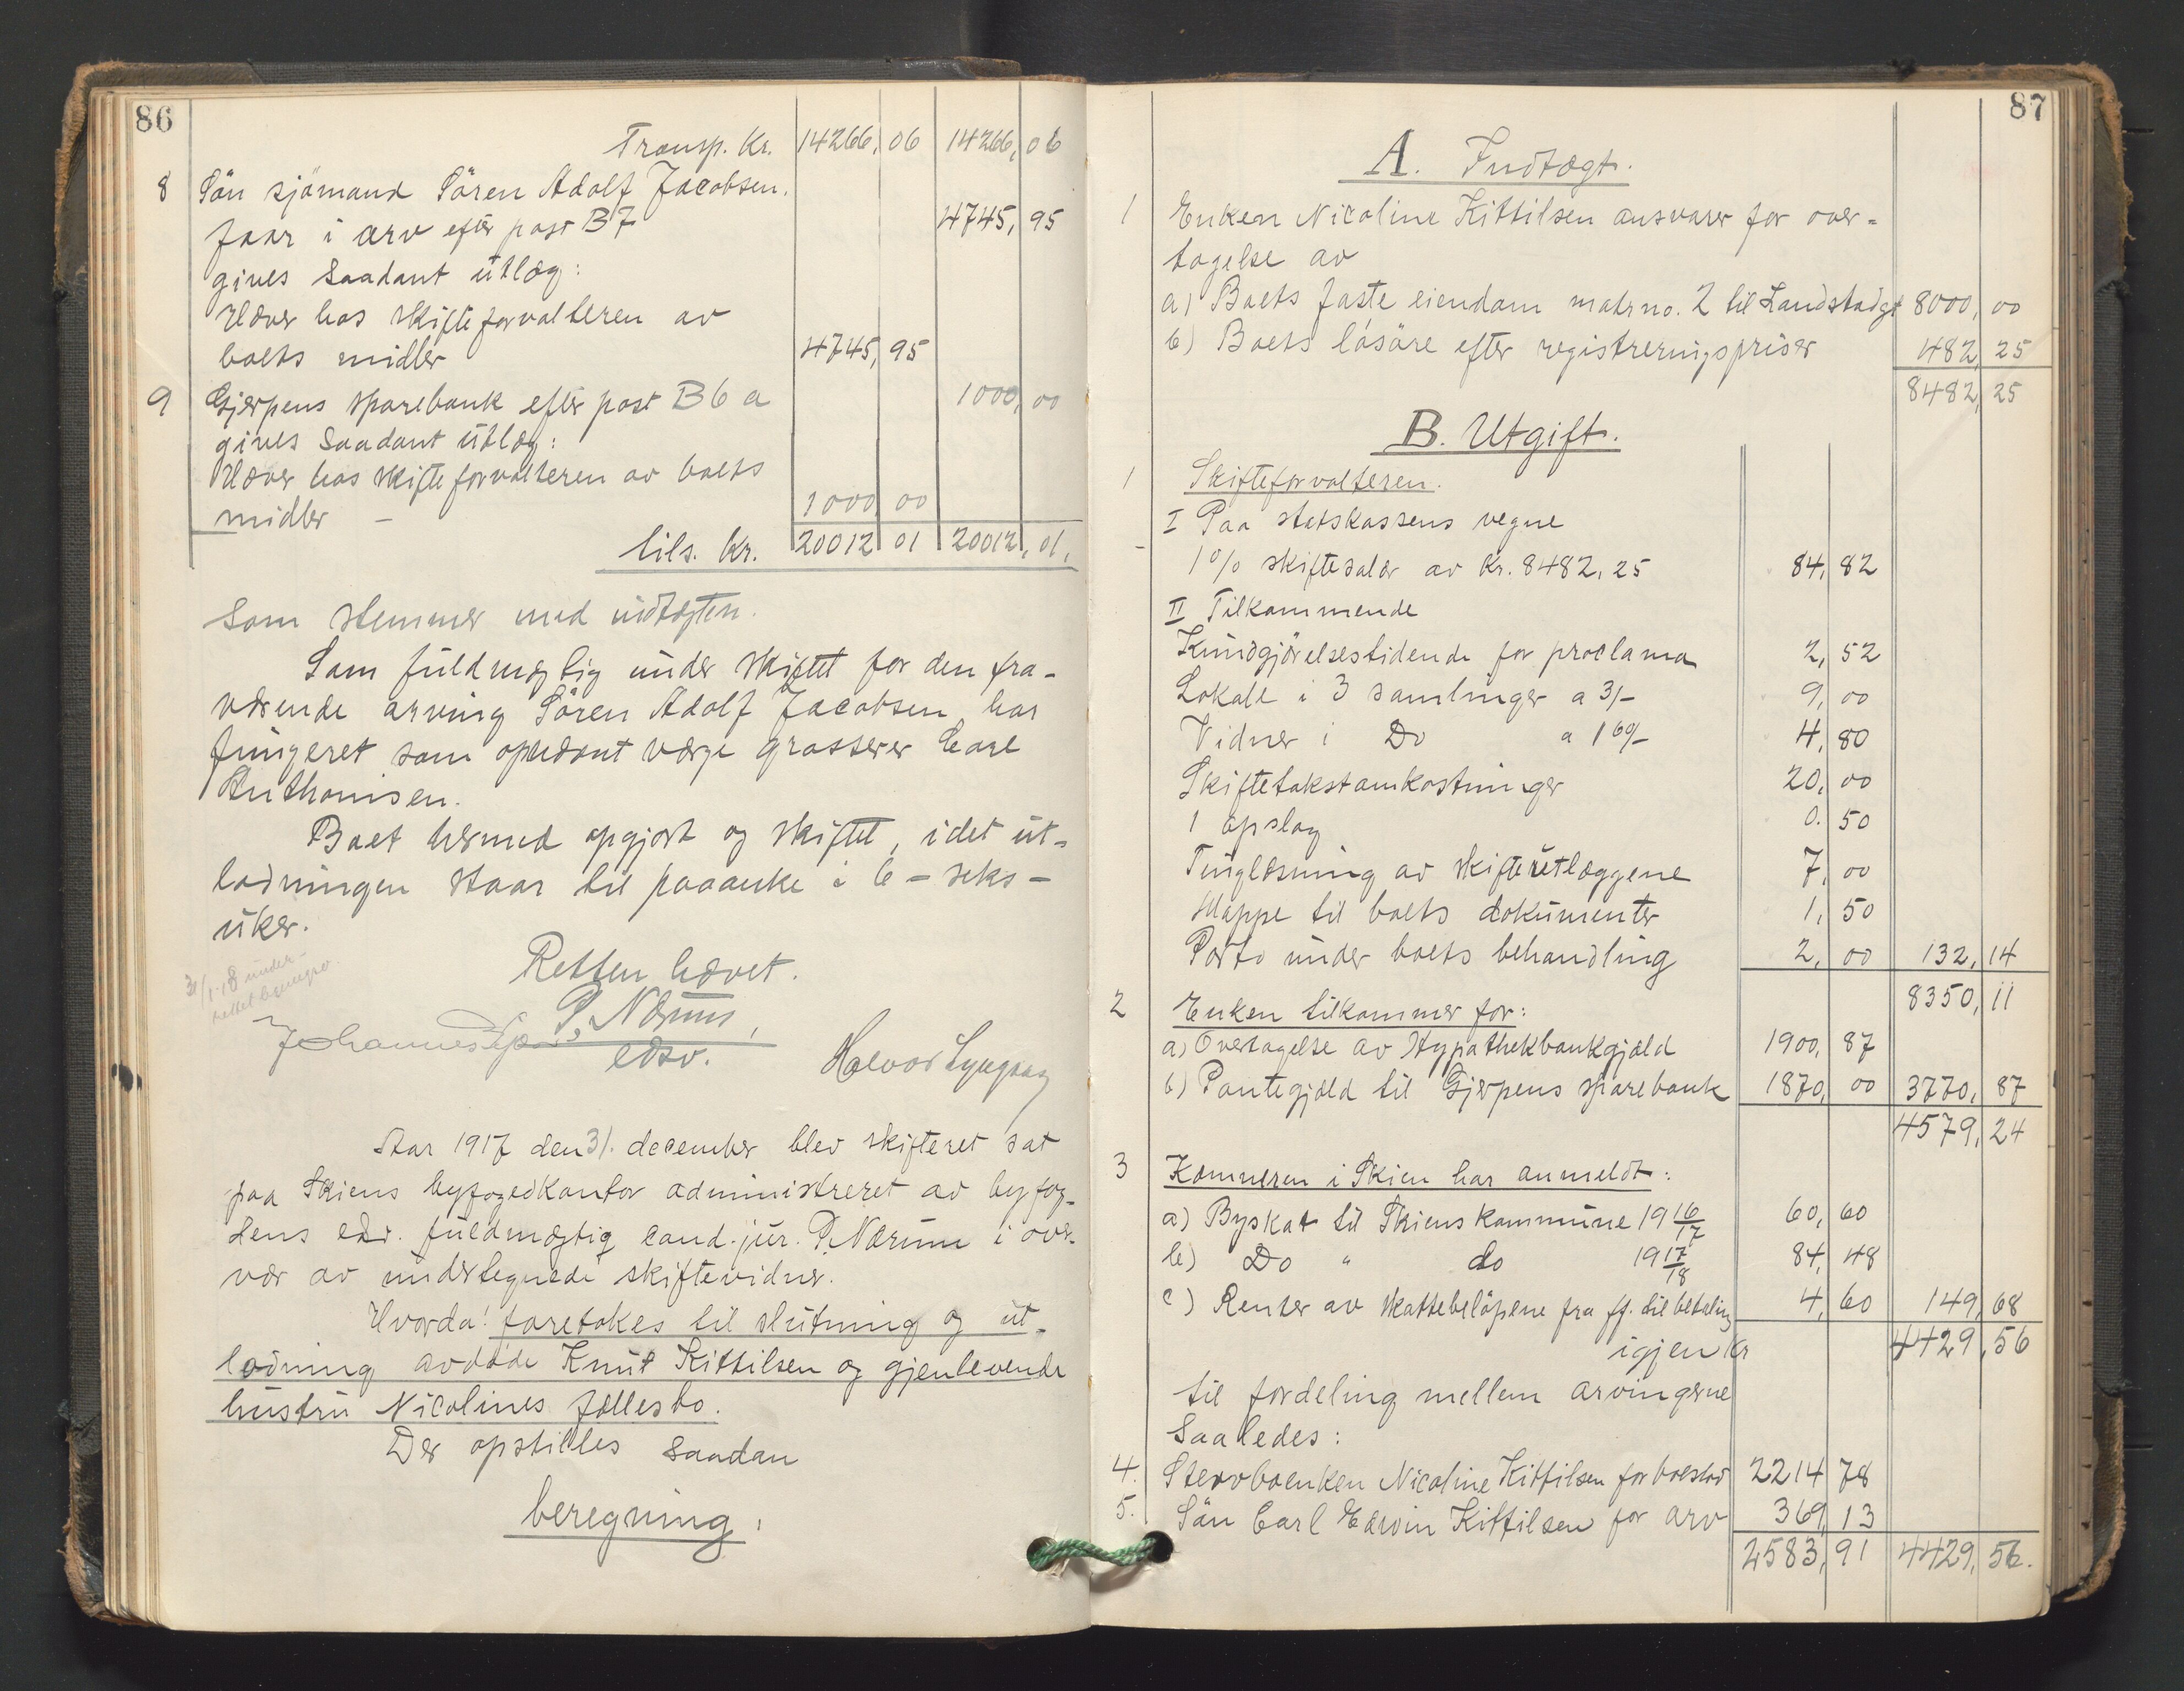 86
Transp. Kr. 14266,06 14266,06
8 Sön sjömand Sören Adolf Jacobsen.
faar i arv efter post B7 4745,95
gives saadant utlæg:
Hæver hos skifteforvalteren av
boets midler 4745,95
9 Gjerpens sparebank efter post B 6 a 1000,00
gives saadant utlæg:
Hæver hos skifteforvalteren av boets
midler – 1000,00
tils. Kr. 20012 01 20012,01.
som stemmer med indtægten.
Som fuldmægtig under skiftet for den fra-
værende arving Sören Adolf Jacobsen har
fungeret som opnævnt værge grosserer Carl
Anthonisen.
Boet hermed opgjort og skiftet, idet ut-
lodningen staar til paaanke i 6 - seks -
uker.
31/1-18 under-
Retten hævet.
P. Nærum,
edsv.
Johannes
Halvor Lyngaas
Aar 1917 den 31. december blev skifteret sat
paa Skiens byfogedkontor administreret av byfog-
dens edsv. fuldmægtig cand. jur. P. Nærum i over-
vær av undertegnede skiftevidner.
Hvorda! foretokes til slutning og ut-
lodning avdöde Knut Kittilsen og gjenlevende
hustru Nicolines fællesbo.
Der opstilles saadan
beregning:
87
A. Indtægt.
1 Enken Nicoline Kittilsen ansvarer for over-
tagelse av
a) Boets faste eiendom matr no. 2 til Landstadgt 8000,00
b) Boets lösöre efter registreringspriser 482,25
8482,25
B. Utgift.
1 Skifteforvalteren.
I Paa statskassens vegne
1% skiftesalær av Kr. 8482,25 84,82
II Tilkommende
Kundgjörelsestidende for proclama 2,52
Lokale i 3 samlinger a 3/- 9,00
Vidner i Do a 1 60/- 4,80
Skiftetakstomkostninger 20,00
1 opslag 0.50
Tinglæsning av skifteutlæggene 7,00
Mappe til boets dokumenter 1,50
Porto under boets behandling 2,00 132,14
8350,11
2 Enken tilkommer for:
a) Overtagelse av Hypothekbankgjæld 1900,87
b) Pantegjæld til Gjerpens sparebank 1870,00 3770,87
4579,24
3 Kæmneren i Skien har anmeldt:
a) Byskat til Skiens kommune 19 16/17 60,60
b) Do " do 19 17/18 84,48
c) Renter av skattebelöpene fra ff. til betaling 4,60 149,68
igjen Kr 4429,56
til fordeling mellem arvingerne
saaledes:
4. Stervboenken Nicoline Kittilsen for boeslod 2214 78
5. Sön Carl Edvin Kittilsen for arv 369,13
2583,91 4429,56.